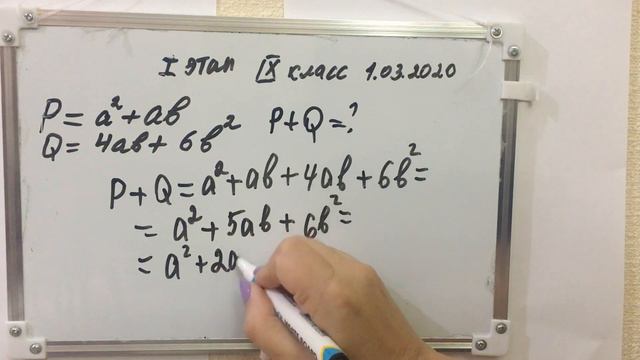 I этап IX класс 1.03.2020
P = a² + ab
Q = 4ab + 6b² P + Q = ?
P + Q = a² + ab + 4ab + 6b² =
= a² + 5ab + 6b² =
= a² + 2a